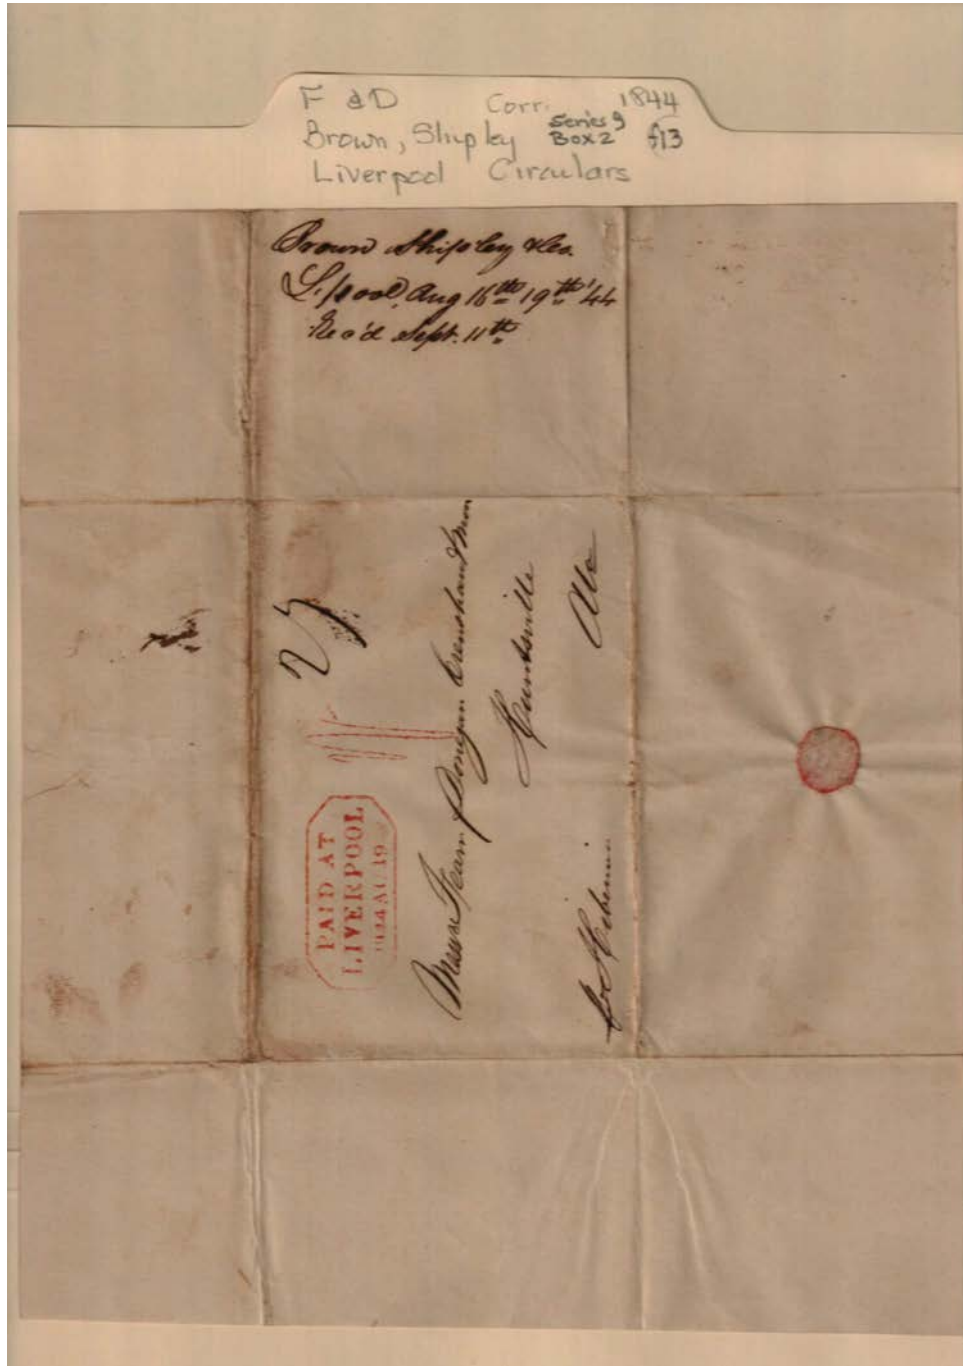 F & D Corr. 1844
Brown, Shipley Series 9 Box 2 f13
Liverpool Circulars
Brown Shipley & Co.
L.pool, Aug 16th 19th '44
Rec'd Sept. 11th
PAID AT
LIVERPOOL
1844 AU 19
Messrs Fearn Donegan Crenshaw &
Huntsville
Ala
p Hibernia